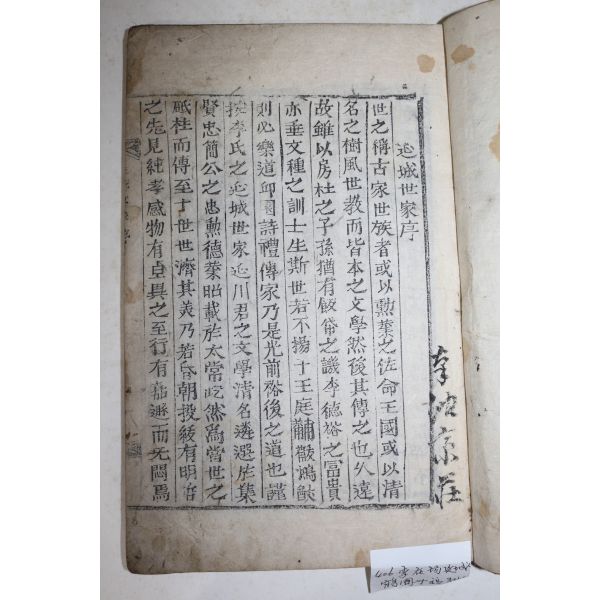 延城世家序
世之稱古家世族者或以勲業之佐命王國或以清
名之樹風世教而皆本之文學然後其傳之也久遠
故雖以房杜之子孫猶有之譏李德裕之富貴
亦垂文種之訓士生斯世若不揚于王庭黼黻鴻猷
則必樂道邱園詩禮傳家乃是光前裕後之道也謹
按李氏之延城世家延川君之文學清名遴選於集
賢忠簡公之忠勲德業昭載於太常屹然爲當世之
砥柱而傳至十世世濟其美乃若昏朝投綏有明哲
之先見純孝感物有卓異之至行有嘉遯而无悶焉